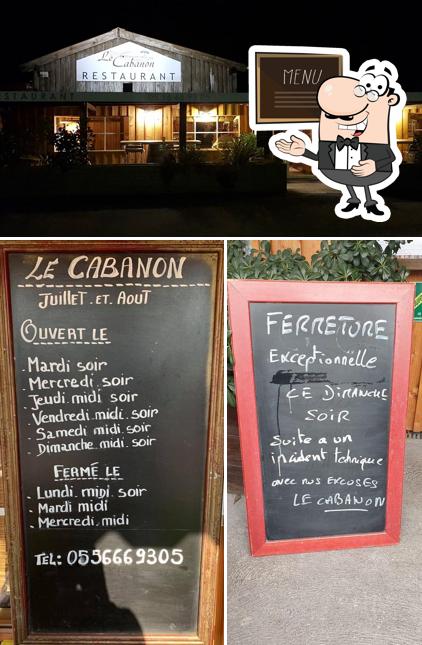 Le Cabanon
RESTAURANT
RESTAURANT
MENU
LE CABANON
JUILLET. ET. AOUT
OUVERT LE
. Mardi soir
. Mercredi. soir
. Jeudi. midi soir
. Vendredi. midi. soir
. Samedi midi. soir
. Dimanche. midi. soir
FERMÉ LE
. Lundi. midi. soir
. Mardi midi
. Mercredi. midi
TEL: 0556669305
FERMETURE
Exceptionnëlle
CE DIMANCHE
SOIR
Suite a un
incident technique
avec nos EXCUSES
LE CABANON